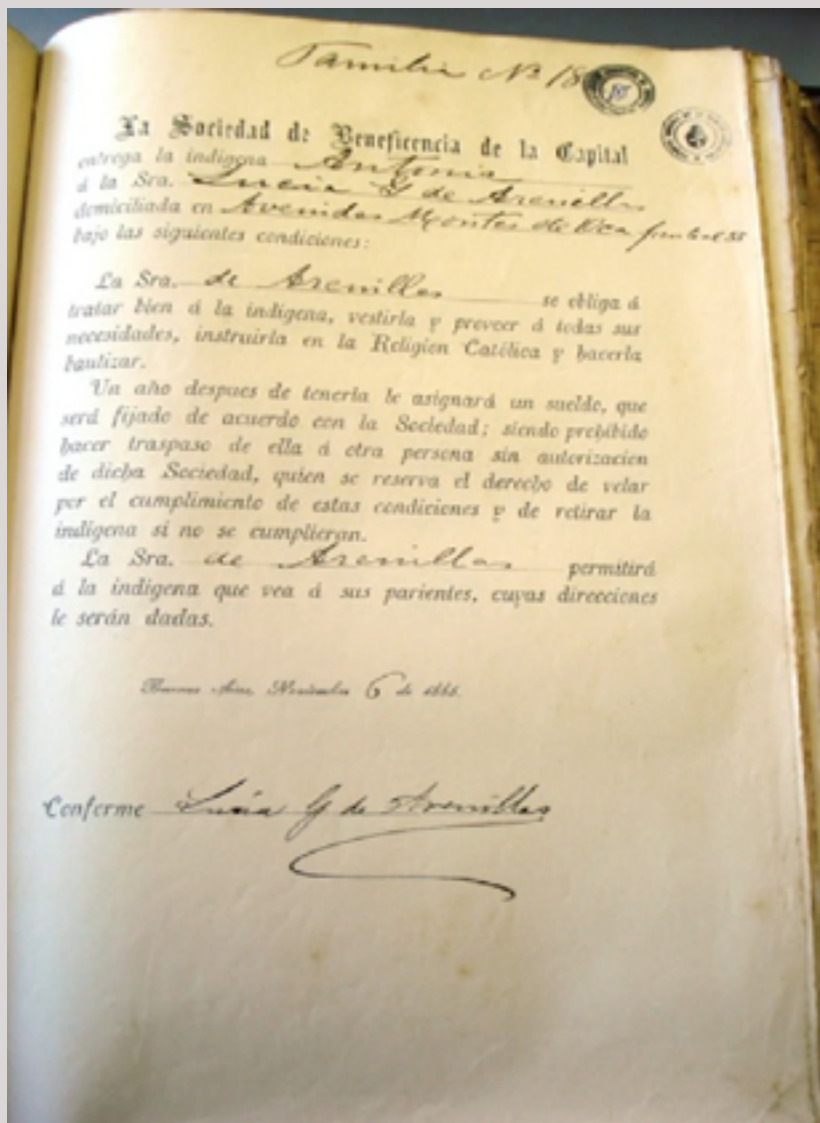 Familia Nº 18
La Sociedad de Beneficencia de la Capital
entrega la indígena Antonia
á la Sra. Lucía G de Arenillas
domiciliada en Avenida Montes de Oca
bajo las siguientes condiciones:
La Sra. de Arenillas se obliga á
tratar bien á la indígena, vestirla y proveer á todas sus
necesidades, instruirla en la Religion Católica y hacerla
bautizar.
Un año despues de tenerla le asignará un sueldo, que
será fijado de acuerdo con la Sociedad; siendo prohibido
hacer traspaso de ella á otra persona sin autorizacion
de dicha Sociedad, quien se reserva el derecho de velar
por el cumplimiento de estas condiciones y de retirar la
indígena si no se cumplieran.
La Sra. de Arenillas permitirá
á la indígena que vea á sus parientes, cuyas direcciones
le serán dadas.
Buenos Aires, Noviembre 6 de
Conforme Lucía G de Arenillas